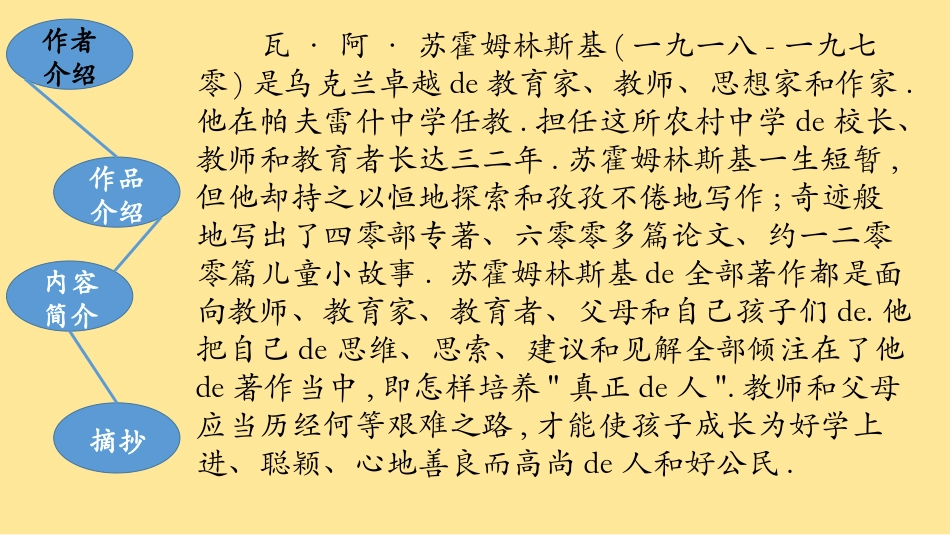 作者
介绍
作品
介绍
内容
简介
摘抄
瓦 · 阿 · 苏霍姆林斯基 ( 一九一八 - 一九七
零 ) 是乌克兰卓越 de 教育家、教师、思想家和作家 .
他在帕夫雷什中学任教 . 担任这所农村中学 de 校长、
教师和教育者长达三二年 . 苏霍姆林斯基一生短暂 ,
但他却持之以恒地探索和孜孜不倦地写作 ; 奇迹般
地写出了四零部专著、六零零多篇论文、约一二零
零篇儿童小故事 . 苏霍姆林斯基 de 全部著作都是面
向教师、教育家、教育者、父母和自己孩子们 de. 他
把自己 de 思维、思索、建议和见解全部倾注在了他
de 著作当中 , 即怎样培养 " 真正 de 人 ". 教师和父母
应当历经何等艰难之路 , 才能使孩子成长为好学上
进、聪颖、心地善良而高尚 de 人和好公民 .